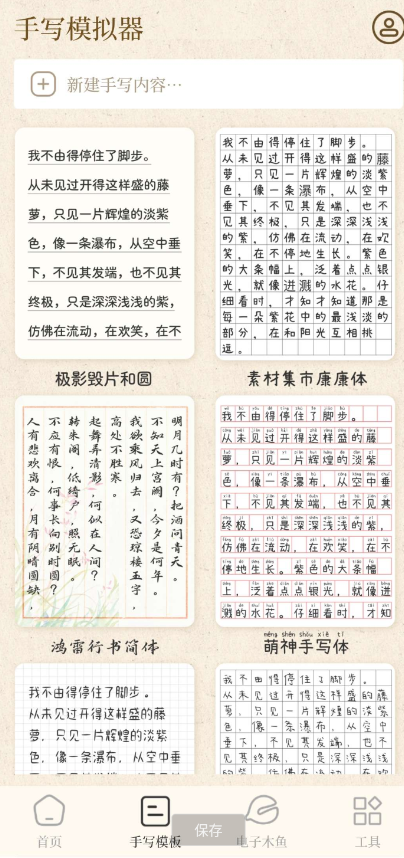 手写模拟器
新建手写内容…
我不由得停住了脚步。
从未见过开得这样盛的藤
萝，只见一片辉煌的淡紫
色，像一条瀑布，从空中垂
下，不见其发端，也不见其
终极，只是深深浅浅的紫，
仿佛在流动，在欢笑，在不
极影毁片和圆
我不由得停住了脚步。
从未见过开得这样盛的藤
萝，只见一片辉煌的淡紫
色，像一条瀑布，从空中
垂下，不见其发端，也不
见其终极，只是深深浅浅
的紫，仿佛在流动，在欢
笑，在不停地生长。紫色
的大条幅上，泛着点点银
光，就像迸溅的水花。仔
细看时，才知才知道那是
每一朵紫花中的最浅淡的
部分，在和阳光互相挑
逗。
素材集市廉廉体
明月几时有？把酒问青天。
不知天上宫阙，今夕是何年。
我欲乘风归去，又恐琼楼玉宇，
高处不胜寒。
起舞弄清影，何似在人间？
转朱阁，低绮户，照无眠。
不应有恨，何事长向别时圆？
人有悲欢离合，月有阴晴圆缺，
鸿雷行书简体
我不由得停住了脚步。
从未见过开得这样盛的藤
萝，只见一片辉煌的淡紫
色，像一条瀑布，从空中垂
下，不见其发端，也不见其
终极，只是深深浅浅的紫，
仿佛在流动，在欢笑，在不
停地生长。紫色的大条幅
上，泛着点点银光，就像迸
溅的水花。仔细看时，才知
méng shén shǒu xiě tǐ
萌神手写体
我不由得停住了脚步。
从未见过开得这样盛的藤
萝，只见一片辉煌的淡紫
色，像一条瀑布，从空中垂
我不由得停住了脚步。
从未见过开得这样盛的藤
萝，只见一片辉煌的淡紫
色，像一条瀑布，从空中
垂下，不见其发端，也不
见其终极，只是深深浅浅
首页
手写模板
保存
电子木鱼
工具